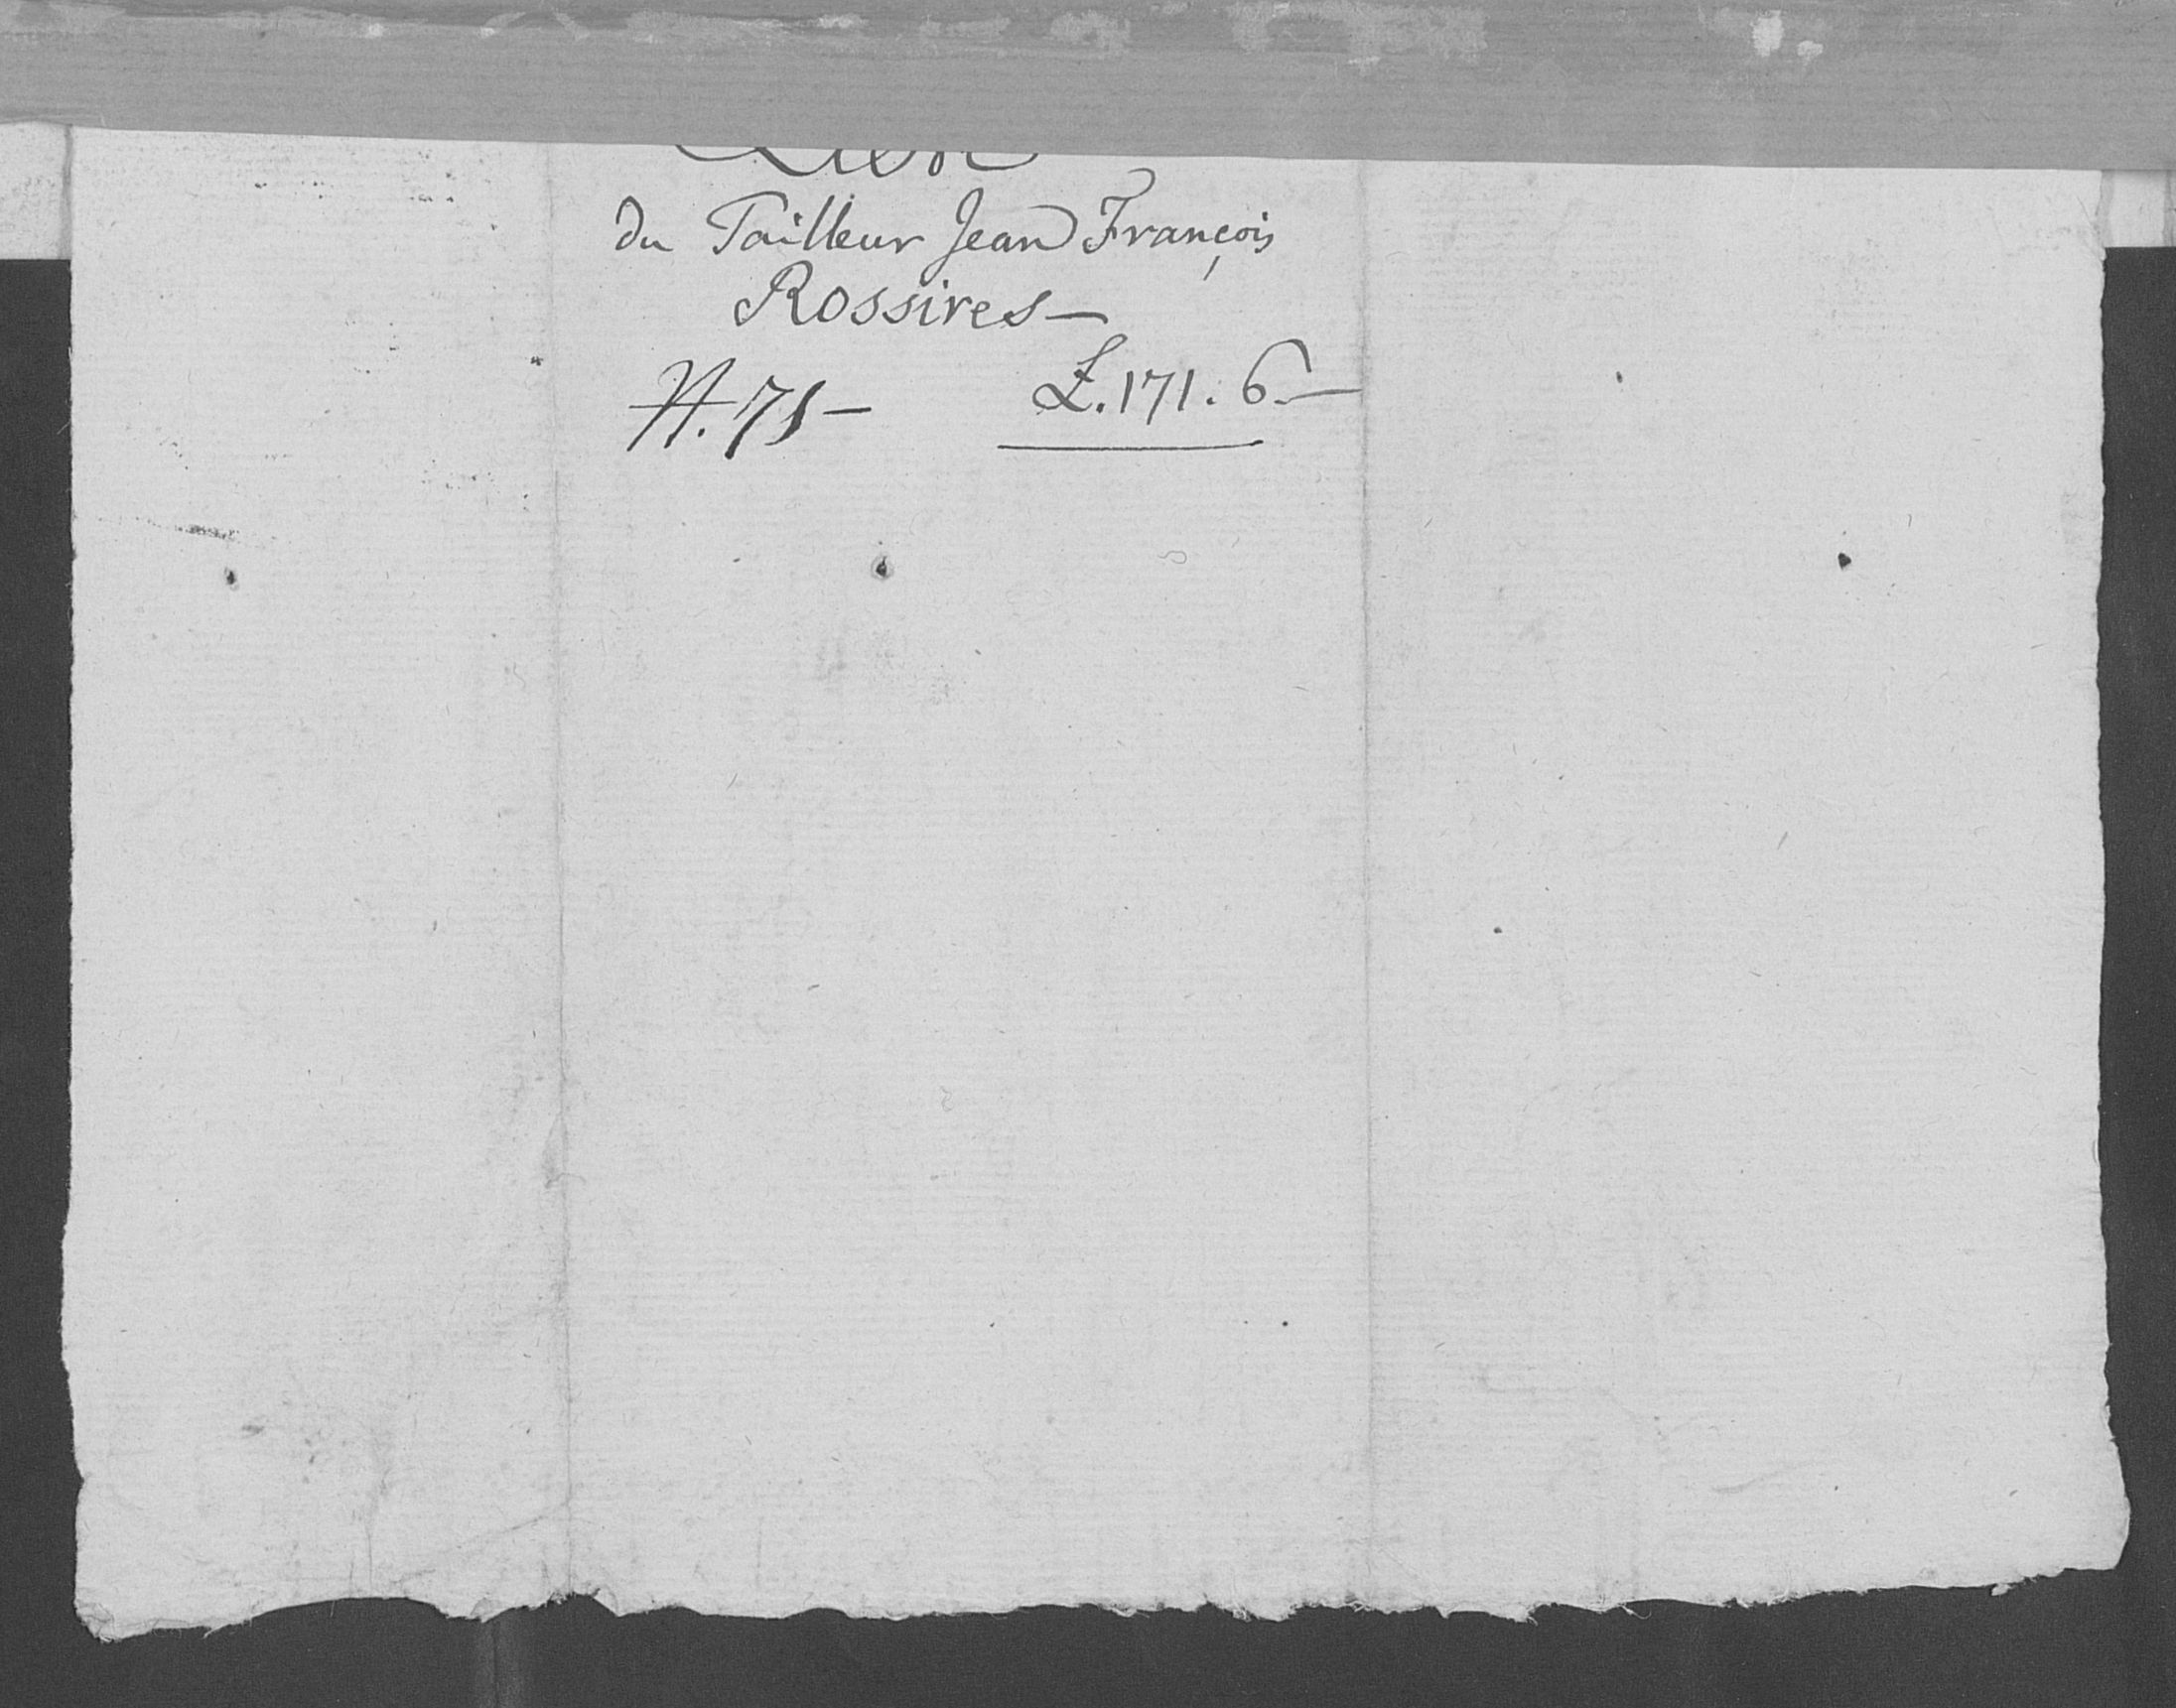 du Tailleur Jean François
Rossires —
N. 71 — £. 171. 6. —